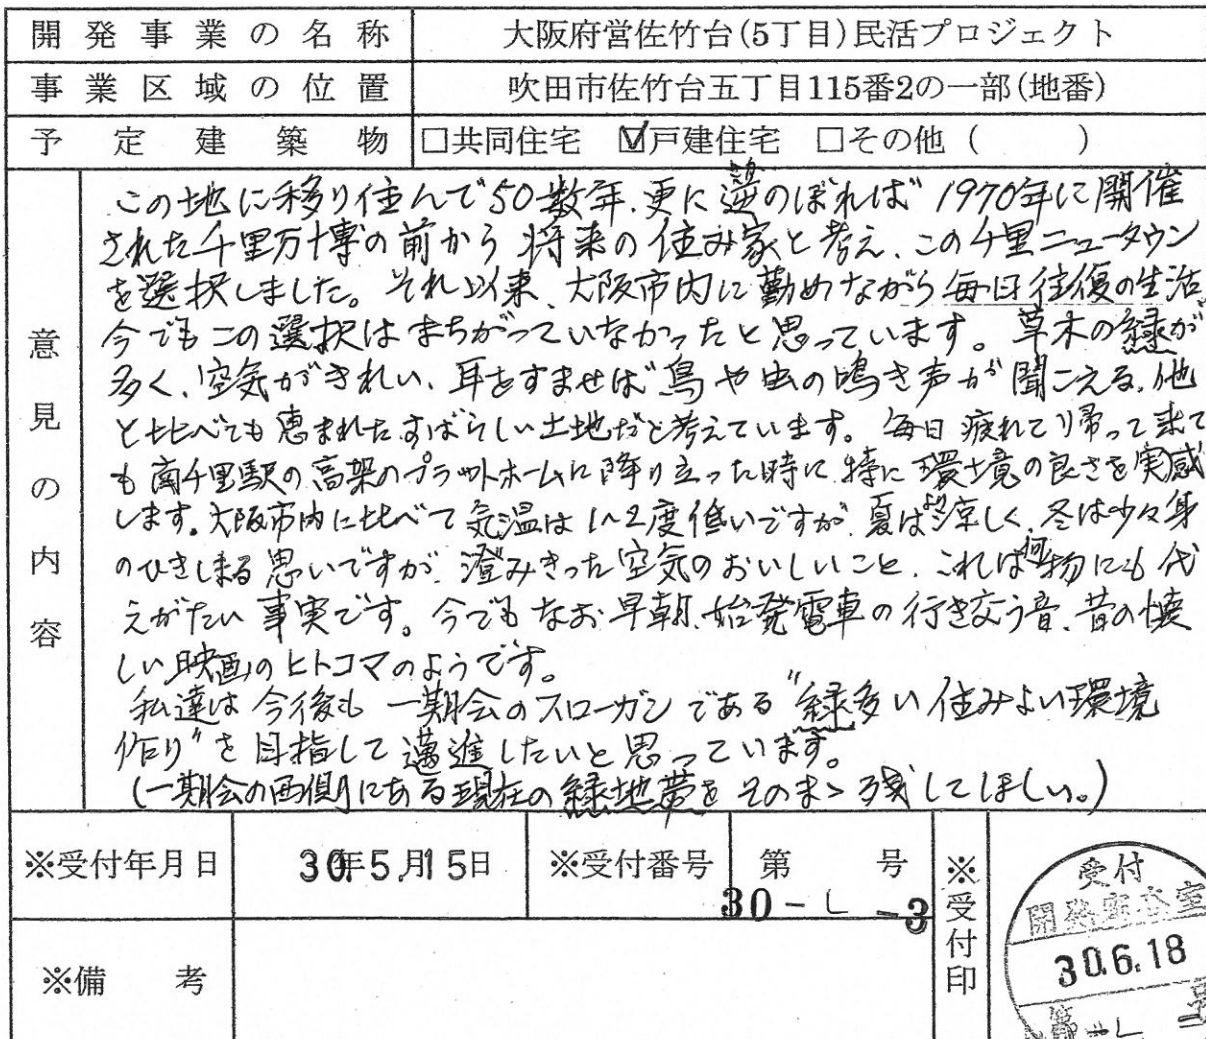 開発事業の名称 大阪府営佐竹台(5丁目)民活プロジェクト
事業区域の位置 吹田市佐竹台五丁目115番2の一部(地番)
予定建築物 □共同住宅 ☑戸建住宅 □その他( )
意見の内容
この地に移り住んで50数年、更に逆のぼれば1970年に開催
された千里万博の前から将来の住み家と考え、この千里ニュータウン
を選択しました。それ以来、大阪市内に勤めながら毎日往復の生活
今でもこの選択はまちがっていなかったと思っています。草木の緑が
多く、空気がきれい、耳をすませば鳥や虫の鳴き声が聞こえる、他
と比べても恵まれたすばらしい土地だと考えています。毎日疲れて帰って来て
も南千里駅の高架のプラットホームに降り立った時に特に環境の良さを実感
します。大阪市内に比べて気温は1〜2度低いですが、夏は涼しく、冬は少々身
のひきしまる思いですが、澄みきった空気のおいしいこと、これは何物にも代
えがたい事実です。今でもなお早朝、始発電車の行き交う音、昔の懐
しい映画のヒトコマのようです。
私達は今後も一期会のスローガンである"緑多い住みよい環境
作り"を目指して邁進したいと思っています。
(一期会の西側にある現在の緑地帯をそのまゝ残してほしい。)
※受付年月日 30年5月15日 ※受付番号 第 号
30-L-3
※受付印
受付
開発審査室
30.6.18
※備考